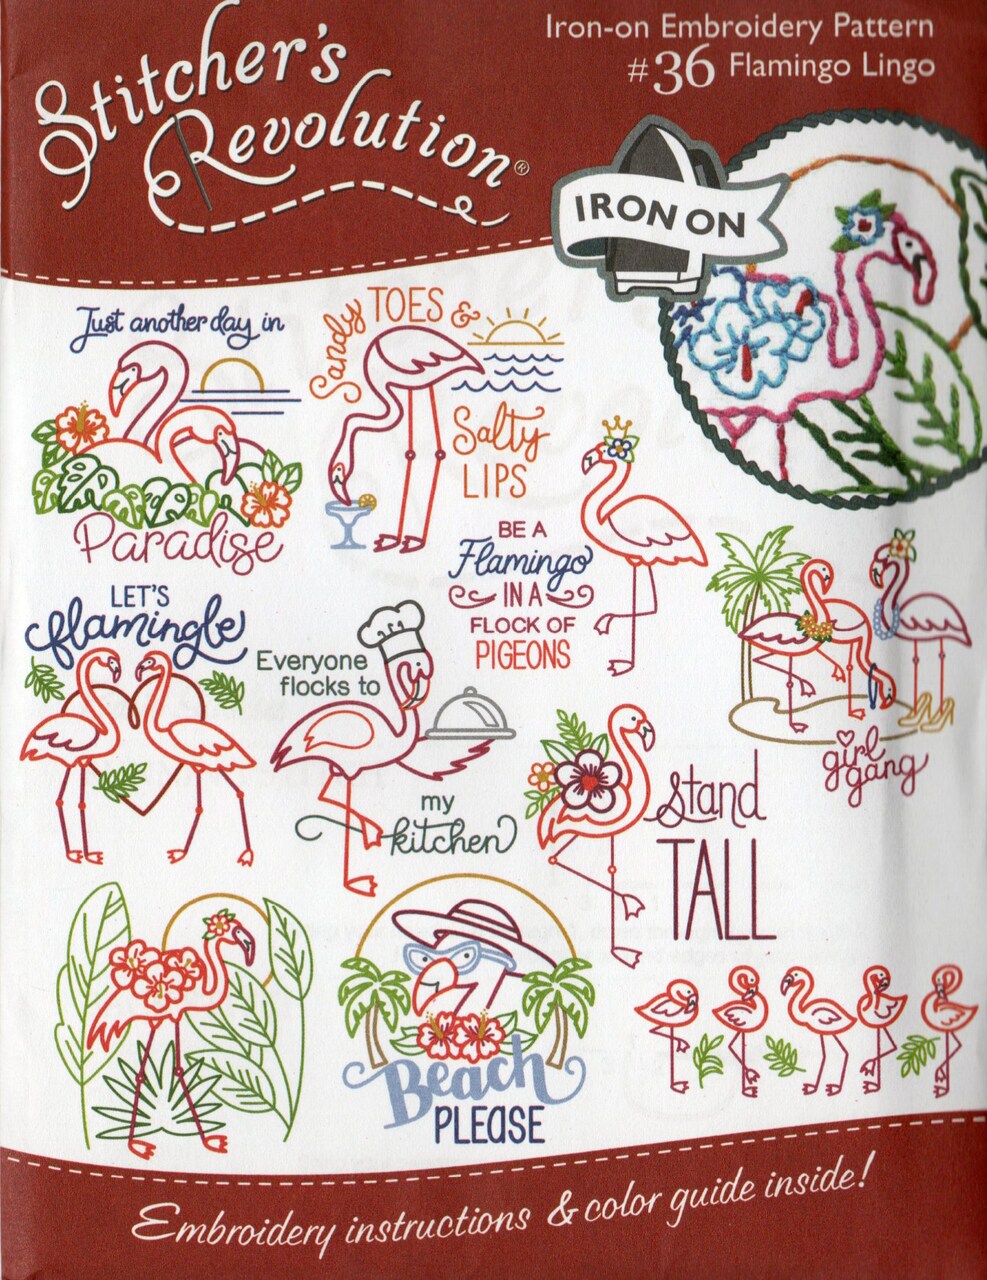 Stitcher's
Revolution®
Iron-on Embroidery Pattern
#36 Flamingo Lingo
IRON ON
Just another day in
Paradise
Sandy TOES &
Salty
LIPS
BE A
Flamingo
IN A
FLOCK OF
PIGEONS
LET'S
flamingle
Everyone
flocks to
my
kitchen
girl
gang
stand
TALL
Beach
PLEASE
Embroidery instructions & color guide inside!